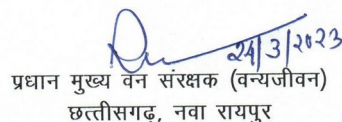 24/3/2023
प्रधान मुख्य वन संरक्षक (वन्यजीवन)
छत्तीसगढ़, नवा रायपुर